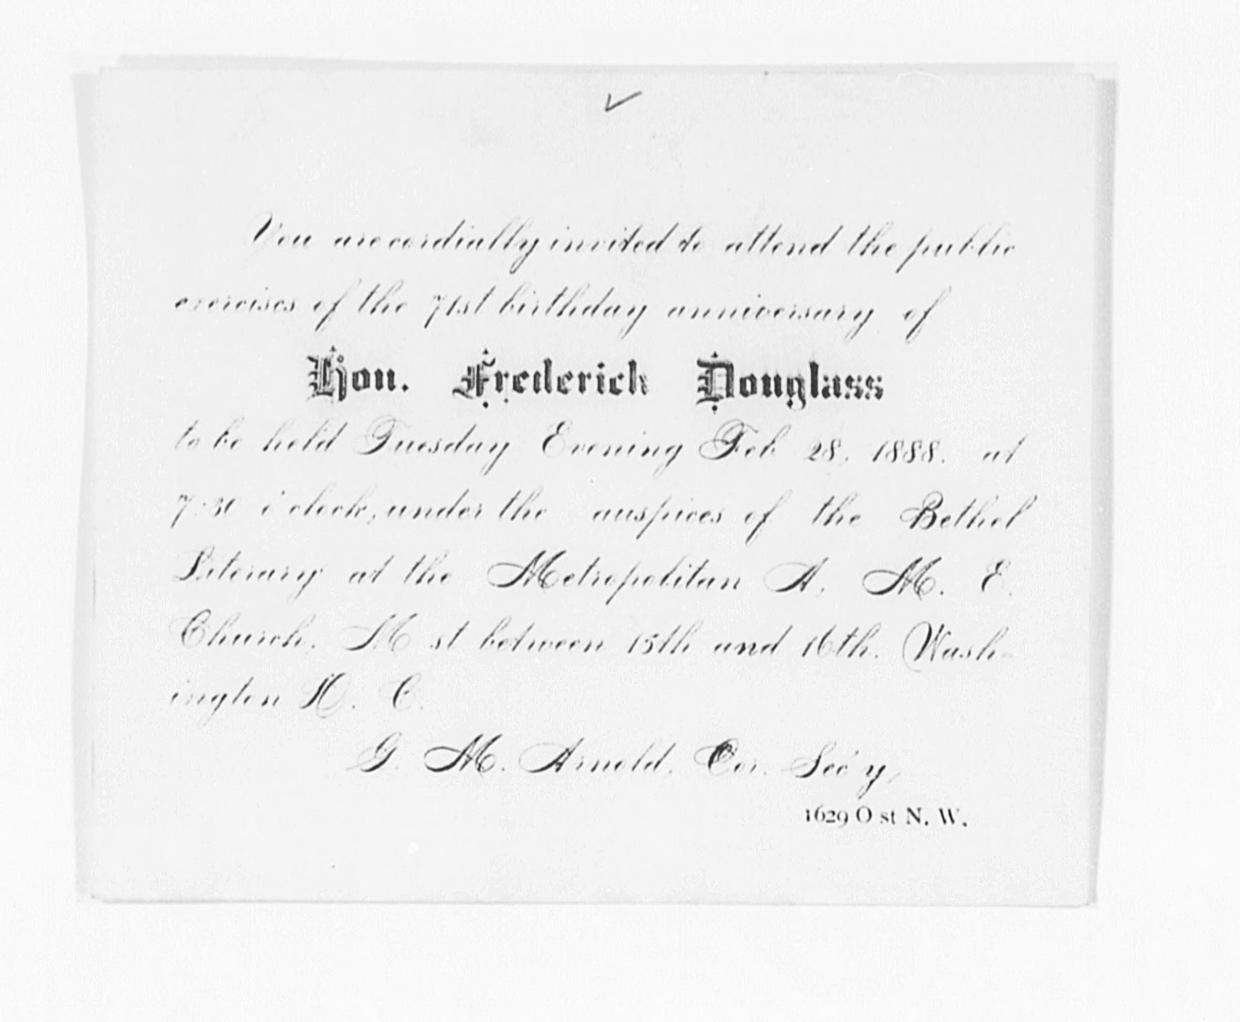 You are cordially invited to attend the public
exercises of the 71st birthday anniversary of
Hon. Frederick Douglass
to be held Tuesday Evening Feb 28, 1888. at
7:30 o'clock, under the auspices of the Bethel
Literary at the Metropolitan A. M. E.
Church, M st between 15th and 16th. Wash-
ington D. C.
G. M. Arnold, Cor. Sec'y,
1629 O st N. W.